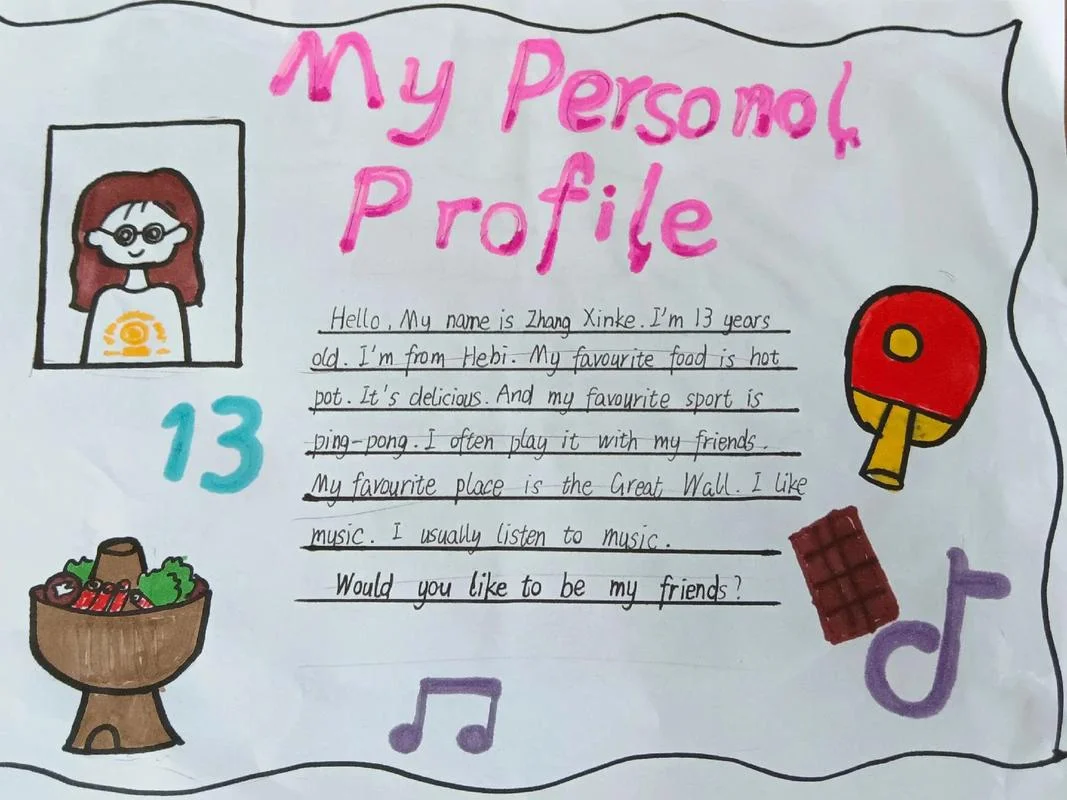 My Personal
Profile
Hello, My name is Zhang Xinke. I'm 13 years
old. I'm from Hebi. My favourite food is hot
pot. It's delicious. And my favourite sport is
ping-pong. I often play it with my friends.
My favourite place is the Great Wall. I like
music. I usually listen to music.
Would you like to be my friends?
13